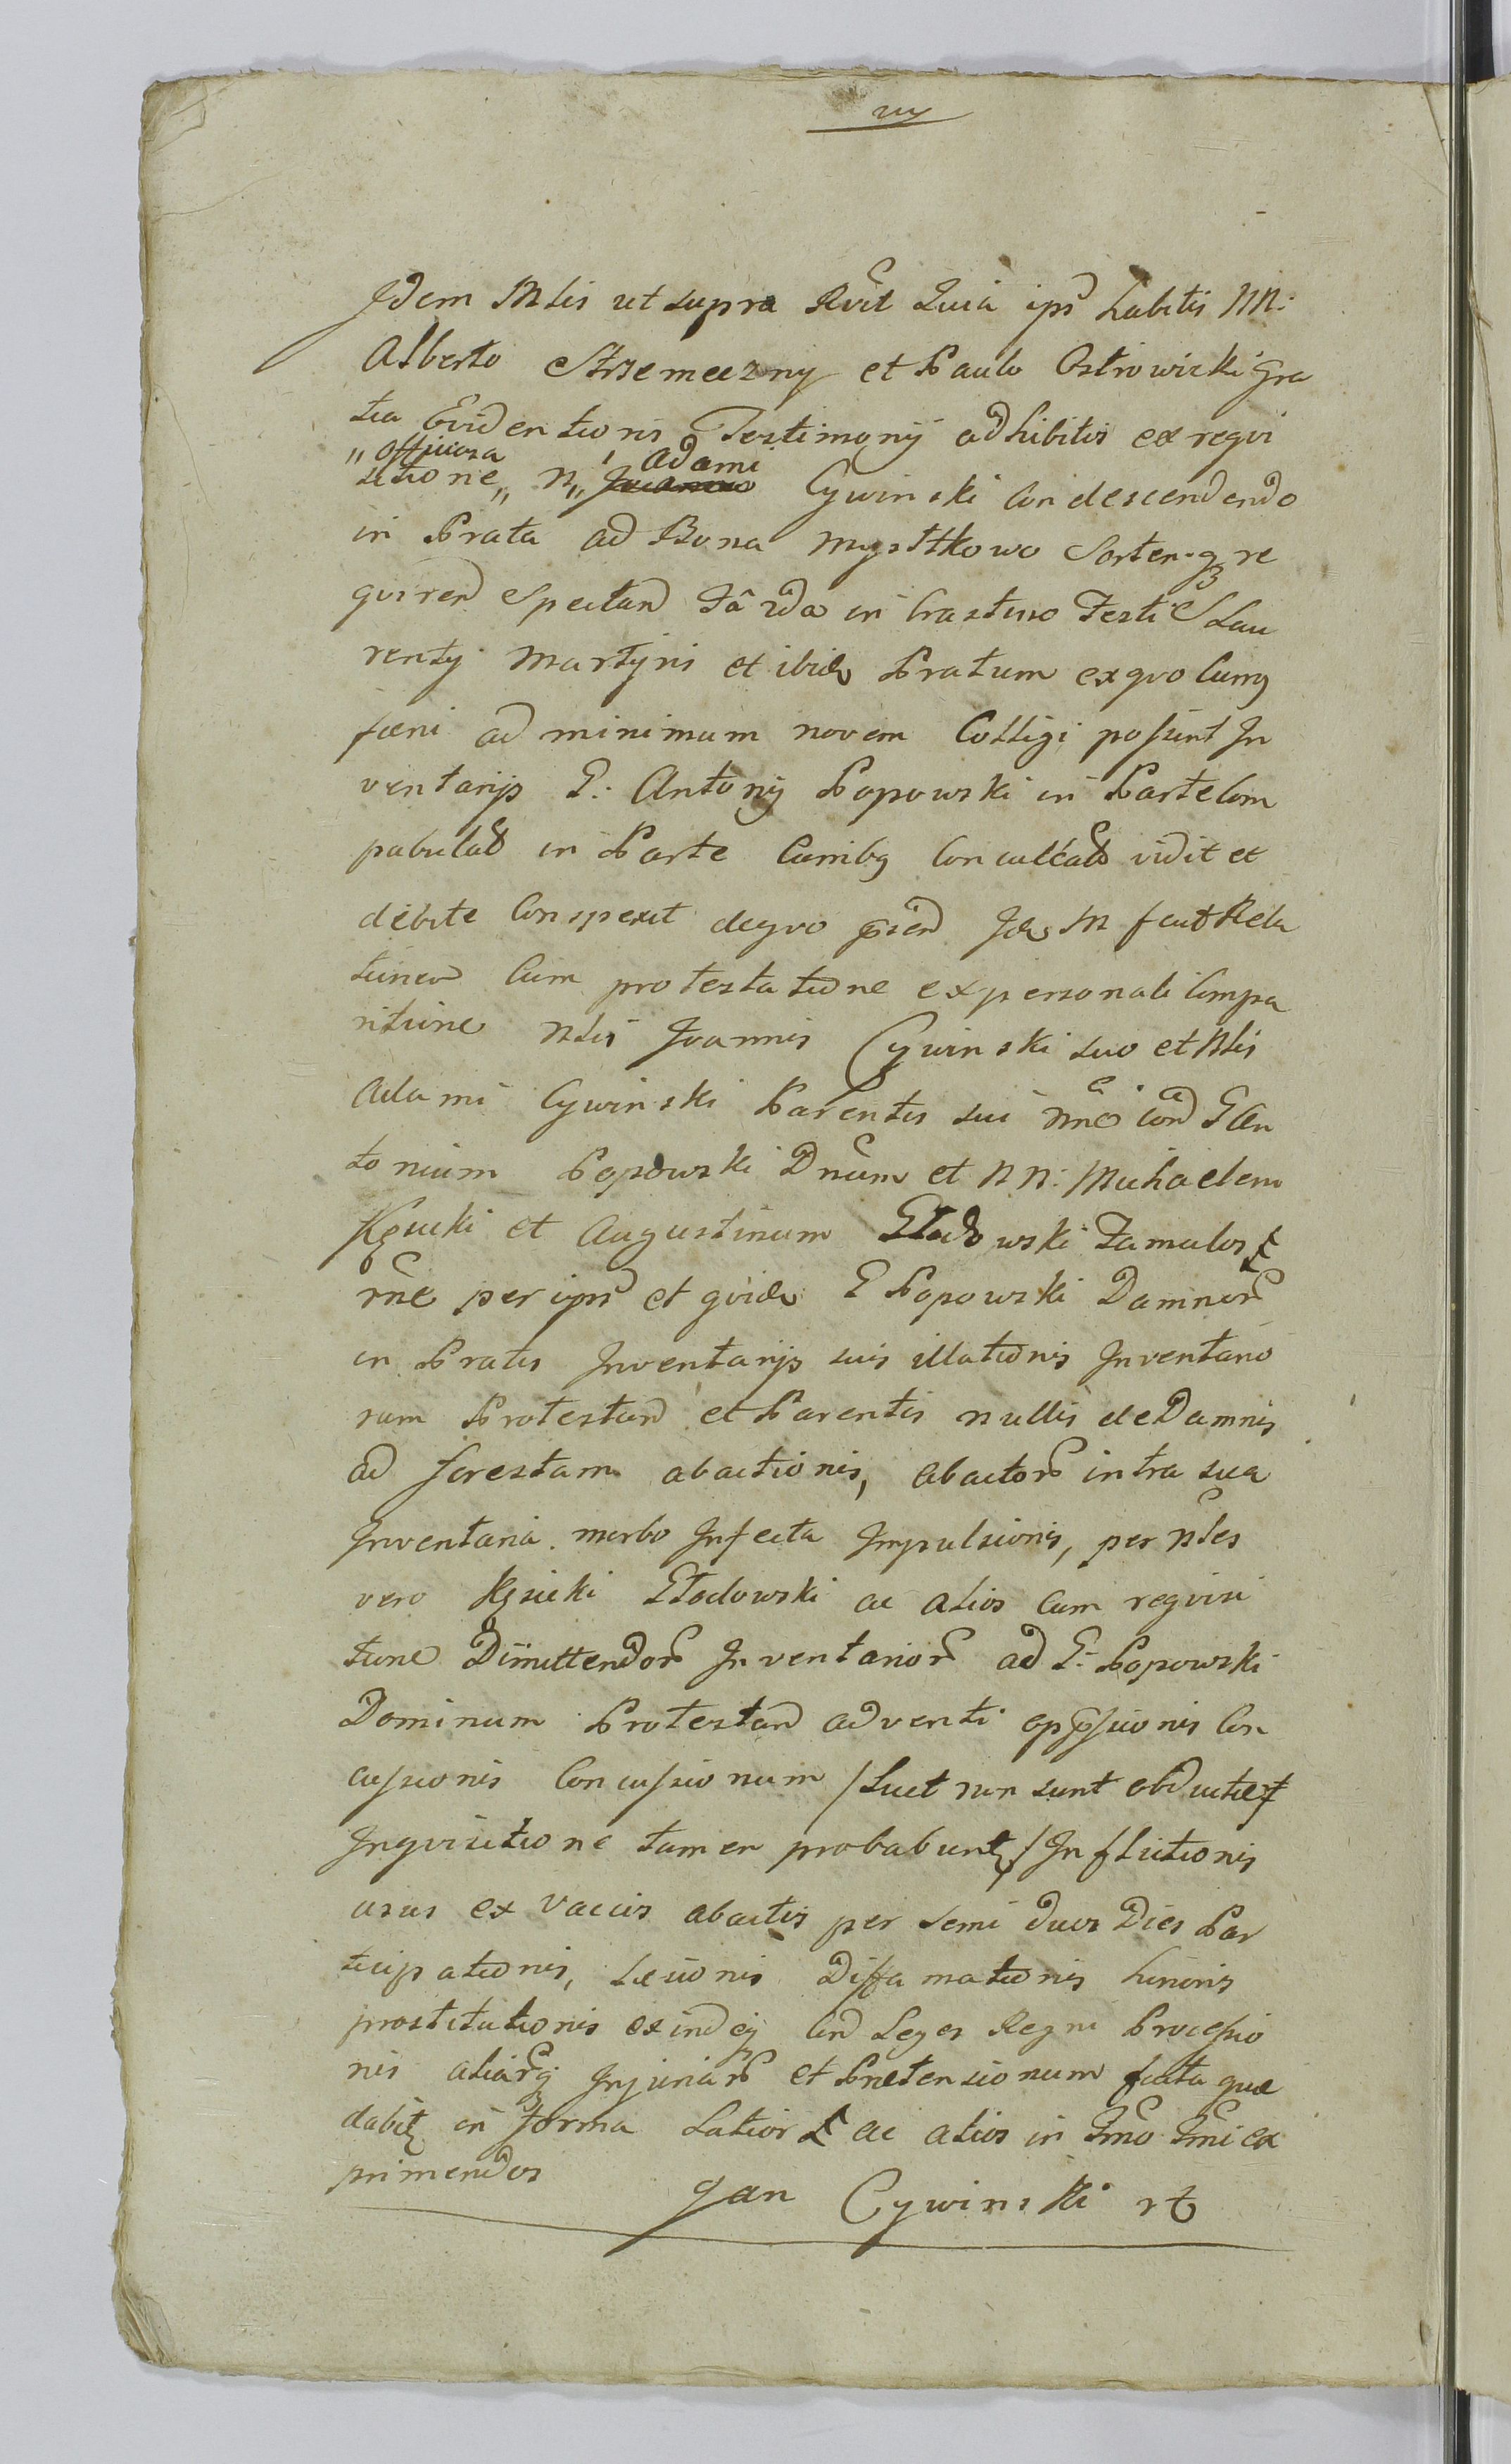 Idem Mlis ut supra Rvit Quia ips habitis NN:
Alberto Strzemeczny et Paulo Ostrowicki Gra
tia Evidentioris Testimonij adhibitis ex reqvi
„officiosa Adami
sitione„ N„ Cywinski Condescendendo
in Prata ad Bona Mystkowo Sortenqz re
qvirend Spectand fâ 2da in Crastino Festi S Lau
rentij Martyris et ibid Pratum ex qvo Currq
fæni ad minimum novem Colligi possunt In
ventarijs G: Antonij Popowski in Parte Com
pabulat in Parte Curribq Conculcat vidit et
debite Conspexit de qvo præn Id M fecit Rela
tionem Cum protestatione ex personali Compa
ritione Nlis Joannis Cywinski suo et Nlis
Adami Cywinski Parentis sui nne con G An
tonium Popowski Dnum et NN: Michaelem
Kęsicki et Augustinum Głodowski Famulos
rne per ips et qvid G Popowski Damnor
in Pratis Inventarijs suis illationis Inventario
rum Protestan et Parentis nullis de Damnis
ad forestam abactionis, abactor intra sua
Inventaria morbo Infecta Impulsionis, per Nles
vero Kęsicki Głodowski ac alios Cum reqvisi
tione Dimittendor Inventarior ad G: Popowski
Dominum Protestan adventi oppssionis Con
cussionis Concussionum /Licet non sunt obductiet
Inqvisitione tamen probabunt/ Inflictionis
usus ex vaccis abactis per semi duos Dies Par
ticipationis, Læsionis Diffamationis honoris
prostitutionis exind ej Con Leges Regni Processio
nis aliarqz Injuriar et Prætensionum facta qvæ
dabit in forma Latiori ac alios in Tmo Tmi ex
primendos
Jan Cywinski